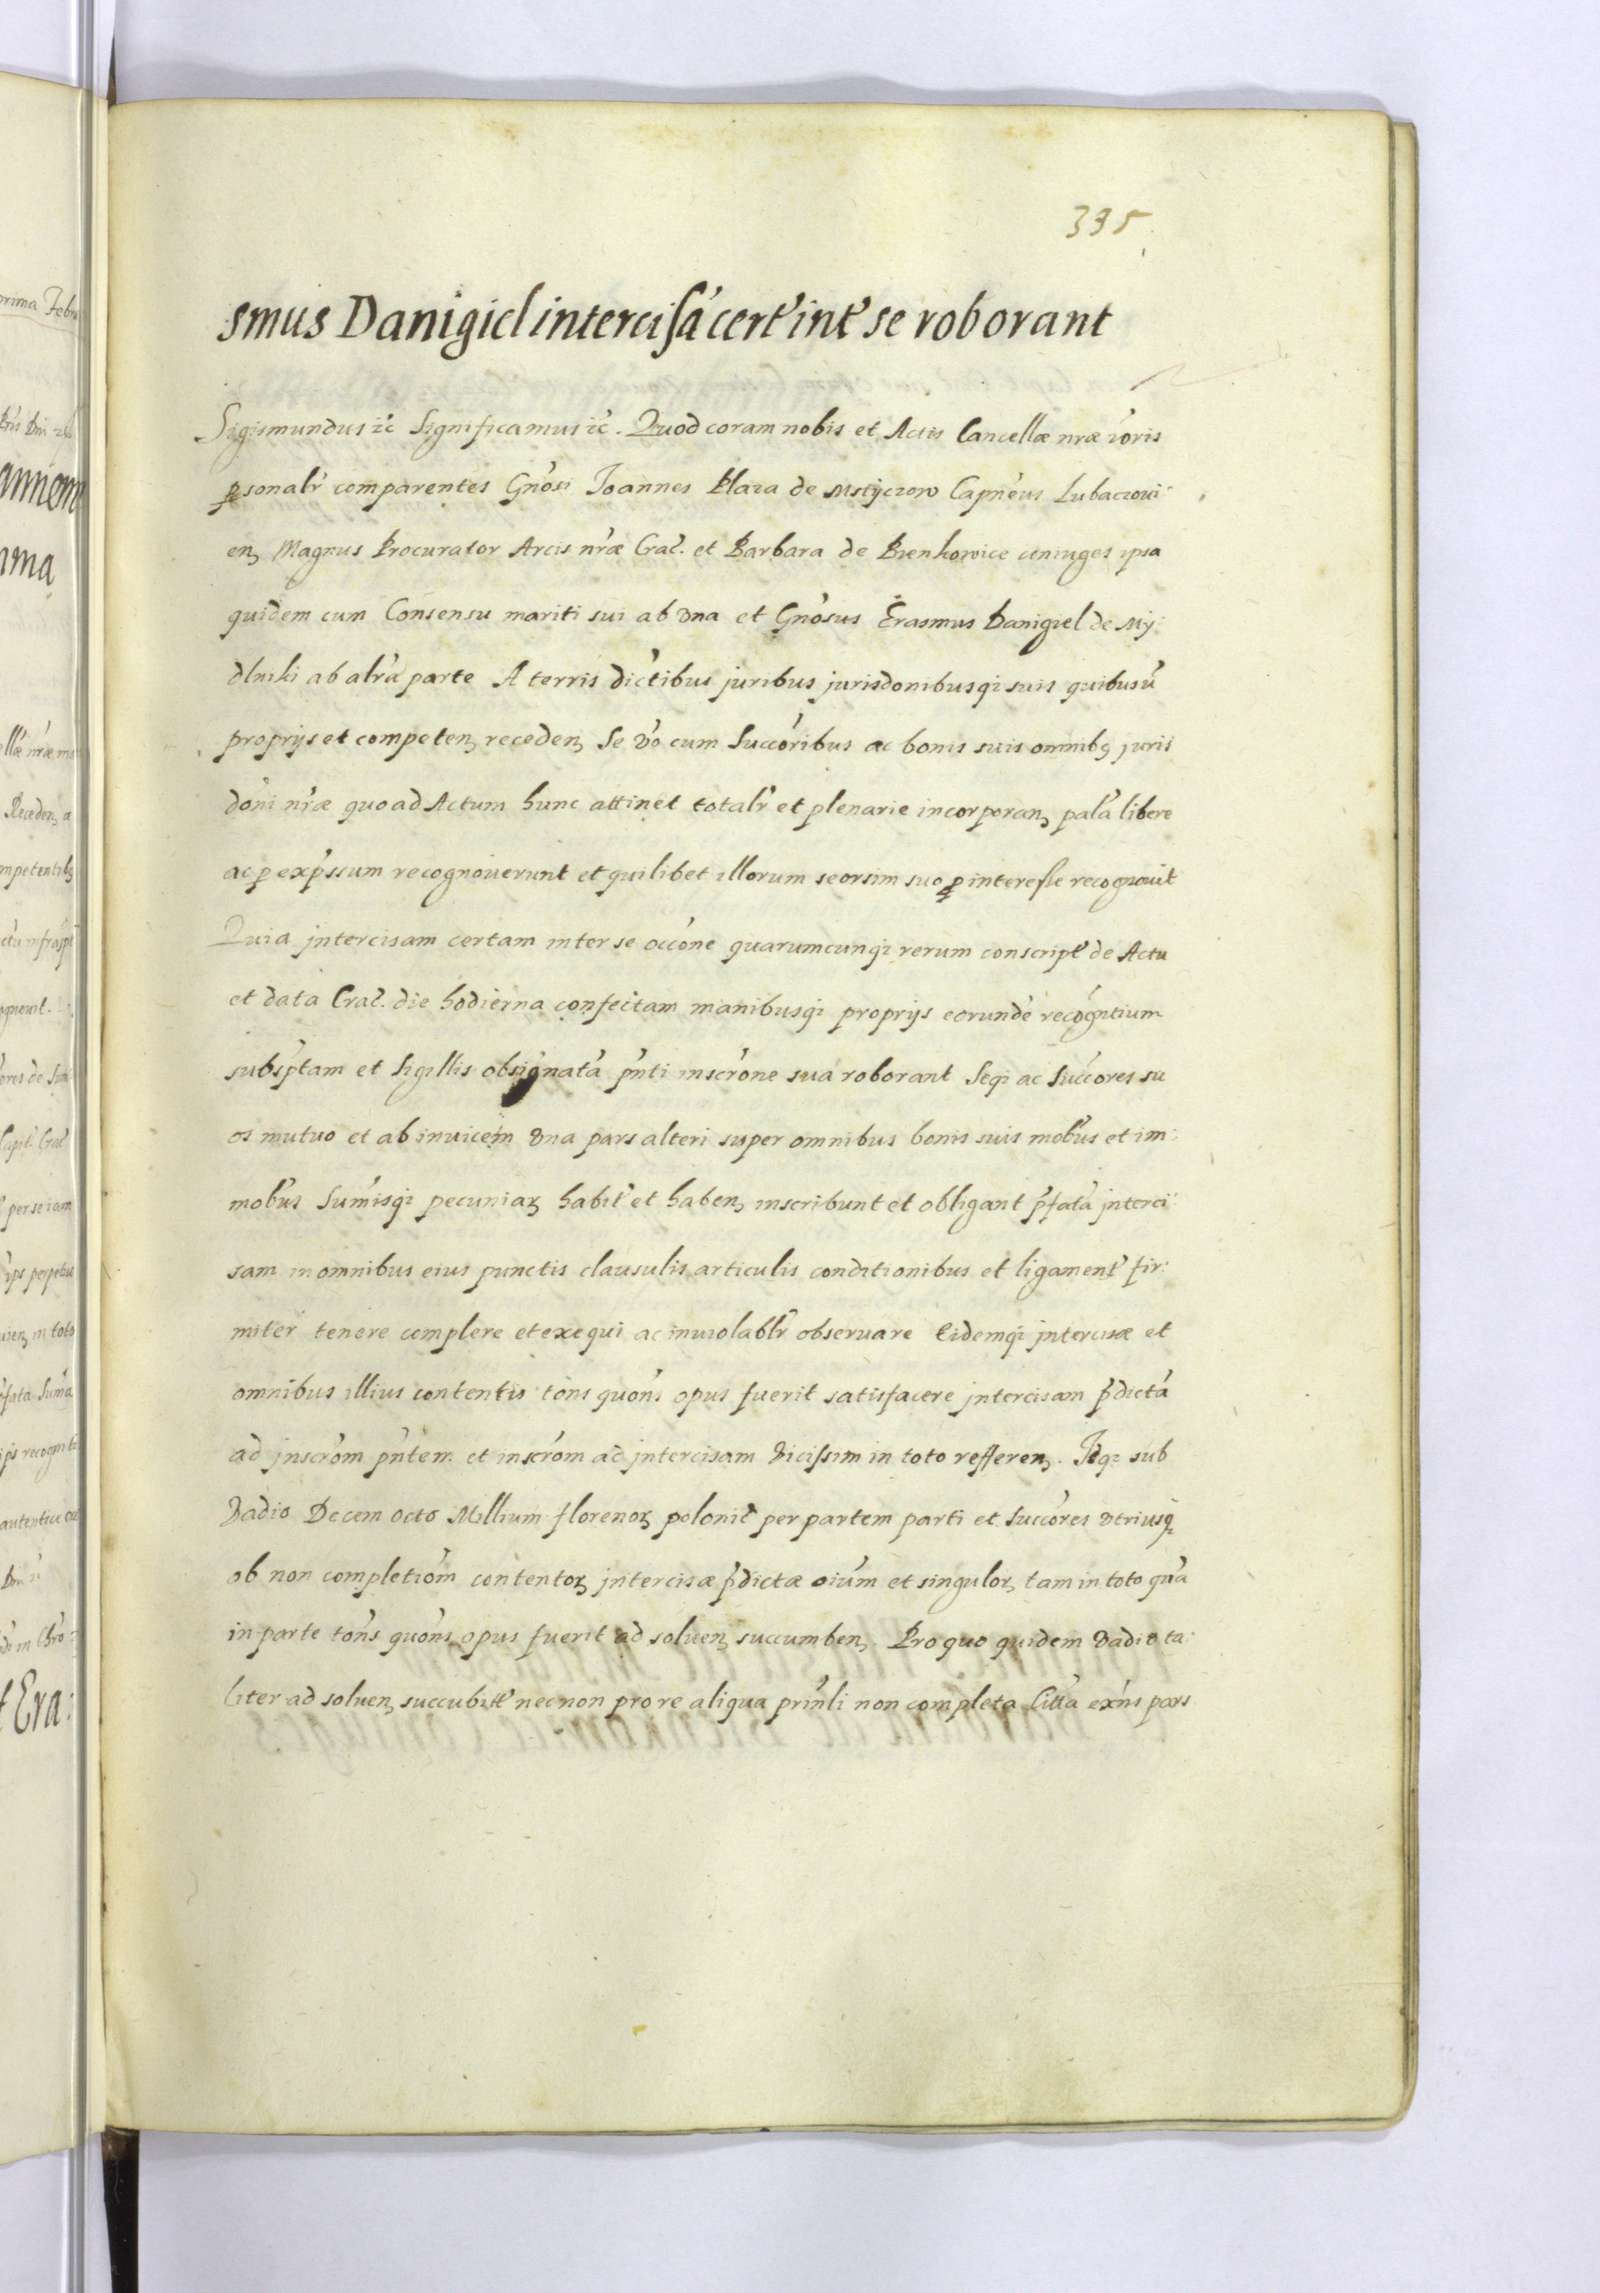 335
smus Danigiel intercisá certˀ intˀ se roborant
Sigismundus &c̃ Significamus &c̃. Quod coram nobis et Actis Cancellæ nr̃æ
p̱sonalr̃ comparentes Gñosi Joannes Plaza de Mstyczow Capñeus Lubaczoui:
eñ Magnus Procurator Arcis nr̃æ Crac̃. et Barbara de Bienkowice coniuges ipsa
quidem cum Consensu mariti sui ab vna et Gñosus Erasmus Danigiel de My:
dlniki ab altr̃a parte A terris dictibus juribus jurisdonibusqȝ suis quibusũ
proprijs et competeñ recedeñ Se ṽo cum Succõribus ac bonis suis omnibꝰ juris
dõni nr̃æ quo ad Actum hunc attinet totalr̃ et plenarie incorporañ palã libere
ac p̱ exp̃ssum recognouerunt et quilibet illorum seorsim suo p̱ interesse recognouit
Quia jntercisam certam inter se occõne quarumcunqȝ rerum conscriptˀ de Actu
et data Crac̃. die hodierna confectam manibusqȝ proprijs eorundẽ recõgntium
subsp̃tam et Sigillis obsignatã pñti inscr̃one suã roborant Seqȝ ac Succõres su
os mutuo et ab inuicem vna pars alteri super omnibus bonis suis mobˀus et im:
mobˀus Sum̃isqȝ pecuniarꝝ habitˀ et habeñ inscribunt et obligant p̃fatã jnterci:
sam in omnibus eius punctis clausulis articulis conditionibus et ligamentˀ fir:
miter tenere complere et exequi ac inuiolablr̃ obseruare Eidemqȝ jntercisæ et
omnibus illius contentis tõns quõns opus fuerit satisfacere jntercisam p̃dictã
ad jnscr̃om pñtem et inscr̃om ad jntercisam vicissim in toto reffereñ. Idqȝ sub
vadio Decem octo Millium florenorꝝ polonic̃ per partem parti et Succõres vtriusqȝ
ob non completiõm contentorꝝ jntercisæ p̃dictæ oium̃ et singulorꝝ tam in toto quã
in parte tõns quõns opus fuerit ad solueñ succumbeñ. Pro quo quidem vadio ta:
liter ad solueñ succubittˀ necnon pro re aliqua prinˀli non completa Citta exñs pars